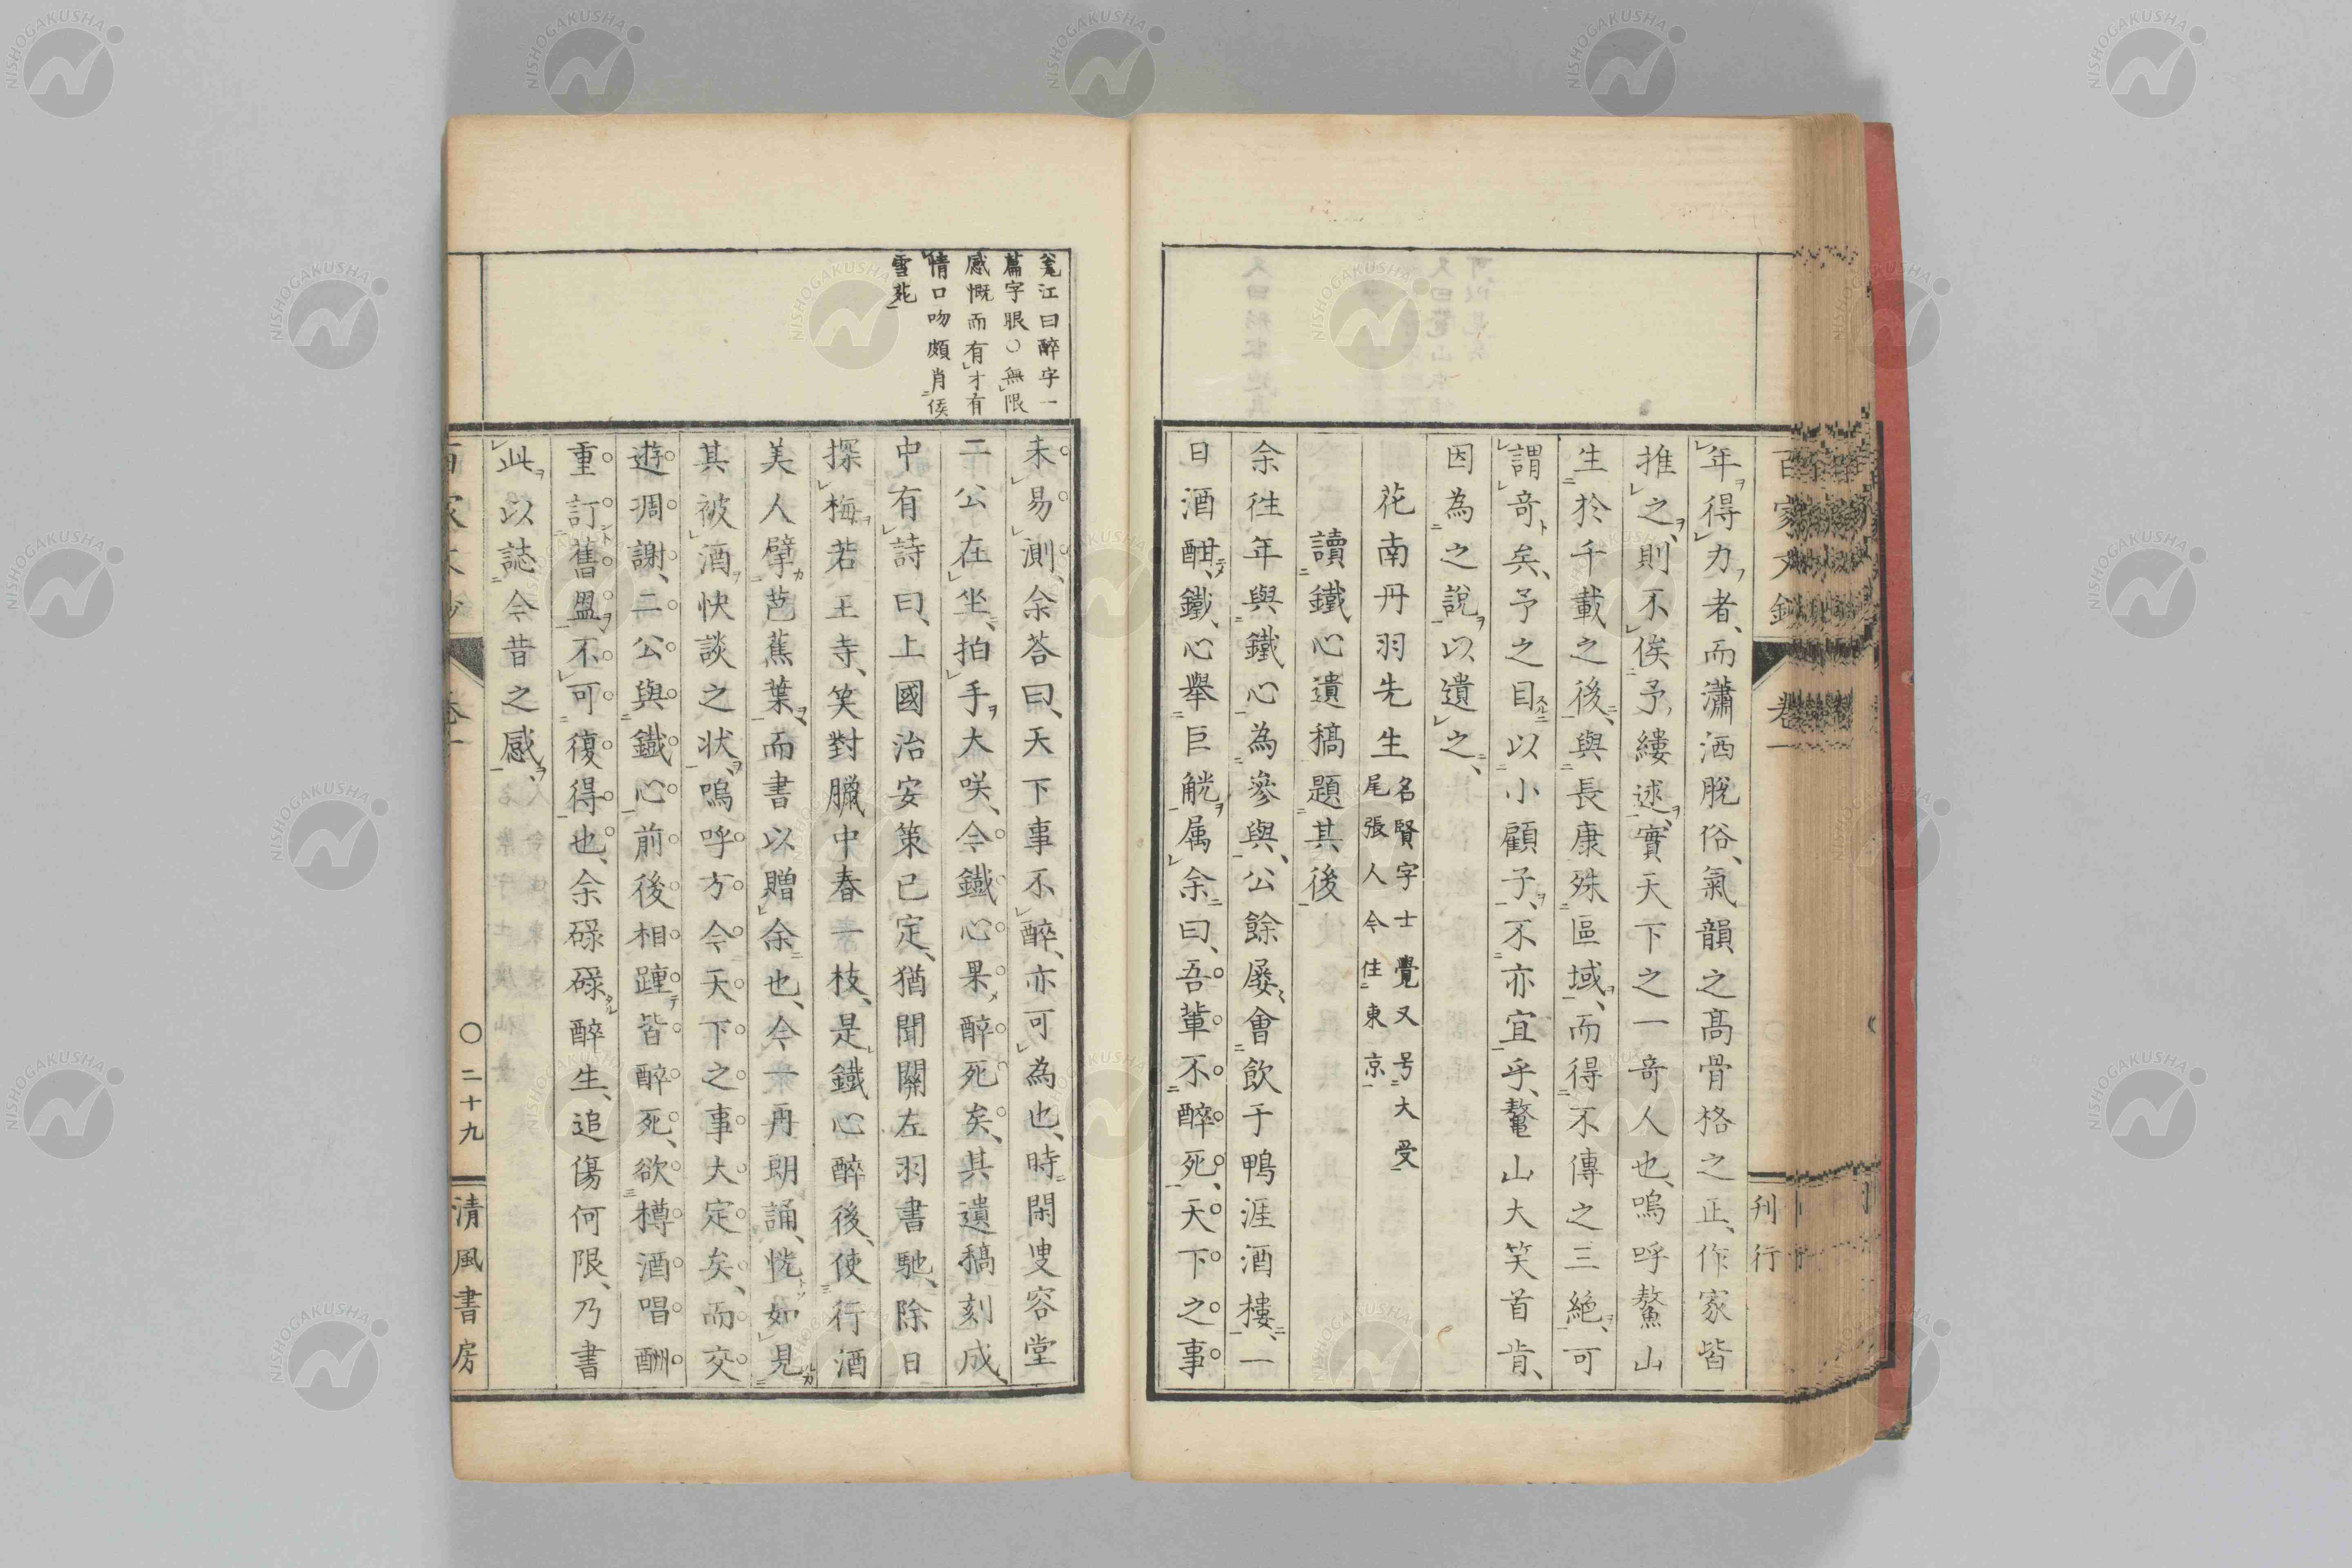 百家文鈔 卷一
刊行
年得力者、而瀟洒脫俗、氣韻之高骨格之正、作家皆
推之、則不俟予縷述、實天下之一奇人也、嗚呼鰲山
生於千載之後、與長康殊區域、而得不傳之三絕、可
謂奇矣、予之目以小顧子、不亦宜乎、鼇山大笑首肯、
因為之說以遺之、
花南丹羽先生
名賢字士覺又号大受
尾張人今住東京
讀鐵心遺稿題其後
余往年與鐵心為參與、公餘屡會飲于鴨涯酒樓、一
日酒酣、鐵心舉巨觥属余曰、吾輩不醉死、天下之事
未易測、余荅曰、天下事不醉、亦可為也、時閑叟容堂
二公在坐、拍手大咲、今鐵心果醉死矣、其遺稿刻成、
中有詩曰、上國治安策已定、猶聞關左羽書馳、除日
探梅若王寺、笑對臘中春一枝、是鐵心醉後、使行酒
美人擘芭蕉葉、而書以贈余也、今一再朗誦、恍如見
其被酒快談之状、嗚呼方今天下之事大定矣、而交
遊凋謝、二公與鐵心前後相踵皆醉死、欲樽酒唱酬
重訂舊盟、不可復得也、余碌碌醉生、追傷何限、乃書
此以誌今昔之感、
瓮江曰醉字一
篇字眼○無限
感慨而有才有
情口吻頗肖侯
雪苑
百家文鈔 卷一 ○二十九 清風書房